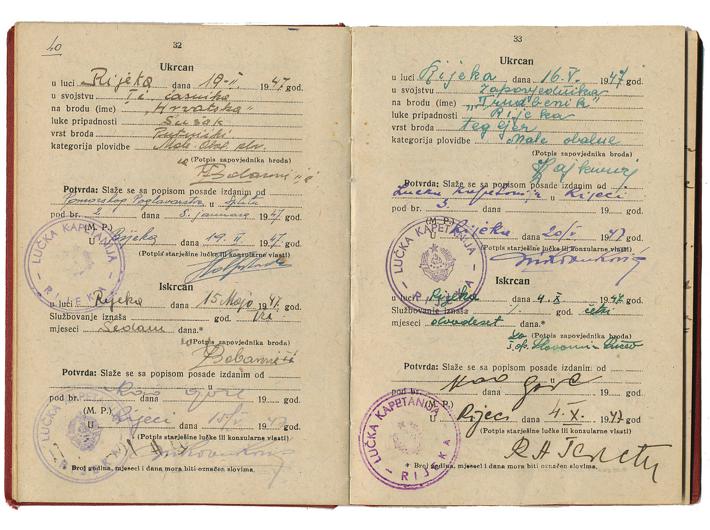 40
32
Ukrcan
u luci Rijeka dana 19-II. 1947 god.
u svojstvu I č. časnika
na brodu (ime) „Hrvatska"
luke pripadnosti Sušak
vrst broda Putnički
kategorija plovidbe Male Obal. plv.
(Potpis zapovjednika broda)
Potvrda: Slaže se sa popisom posade izdanim od
Pomorskog Poglavarstva u Splitu
pod br. 2 dana 8. januara 1947 god.
(M. P.)
U Rijeka 19. II 1947. god.
(Potpis starješine lučke ili konzularne vlasti)
LUČKA KAPETANIJA
RIJEKA
Iskrcan
u luci Rijeka dana 15 Maja 1947. god.
Službovanje iznaša god. tri
mjeseci sedam dana.*
(Potpis zapovjednika broda)
Potvrda: Slaže se sa popisom posade izdanim od
kao gore u
pod br. dana 19 god.
(M. P.)
U Rijeci 15/V 1947 god.
(Potpis starješine lučke ili konzularne vlasti)
LUČKA KAPETANIJA
RIJEKA
* Broj godina, mjeseci i dana mora biti označen slovima.
33
Ukrcan
u luci Rijeka dana 16.V. 1947 god.
u svojstvu Zapovjednika
na brodu (ime) „Trudbenik"
luke pripadnosti Rijeka
vrst broda tegljer
kategorija plovidbe Male obalne
(Potpis zapovjednika broda)
Potvrda: Slaže se sa popisom posade izdanim od
Lučke kapetanije u Rijeci
pod br. 3 dana 19 god.
(M. P.)
U Rijeka 20/V 1947 god.
(Potpis starješine lučke ili konzularne vlasti)
LUČKA KAPETANIJA
RIJEKA
Iskrcan
u luci Rijeka dana 4.X. 1947 god.
Službovanje iznaša /. god. četiri
mjeseci dvadeset dana.*
(Potpis zapovjednika broda)
Potvrda: Slaže se sa popisom posade izdanim od
kao gore u
pod br. dana 19 god.
(M. P.)
U Rijeci 4.X. 1947 god.
(Potpis starješine lučke ili konzularne vlasti)
LUČKA KAPETANIJA
RIJEKA
* Broj godina, mjeseci i dana mora biti označen slovima.